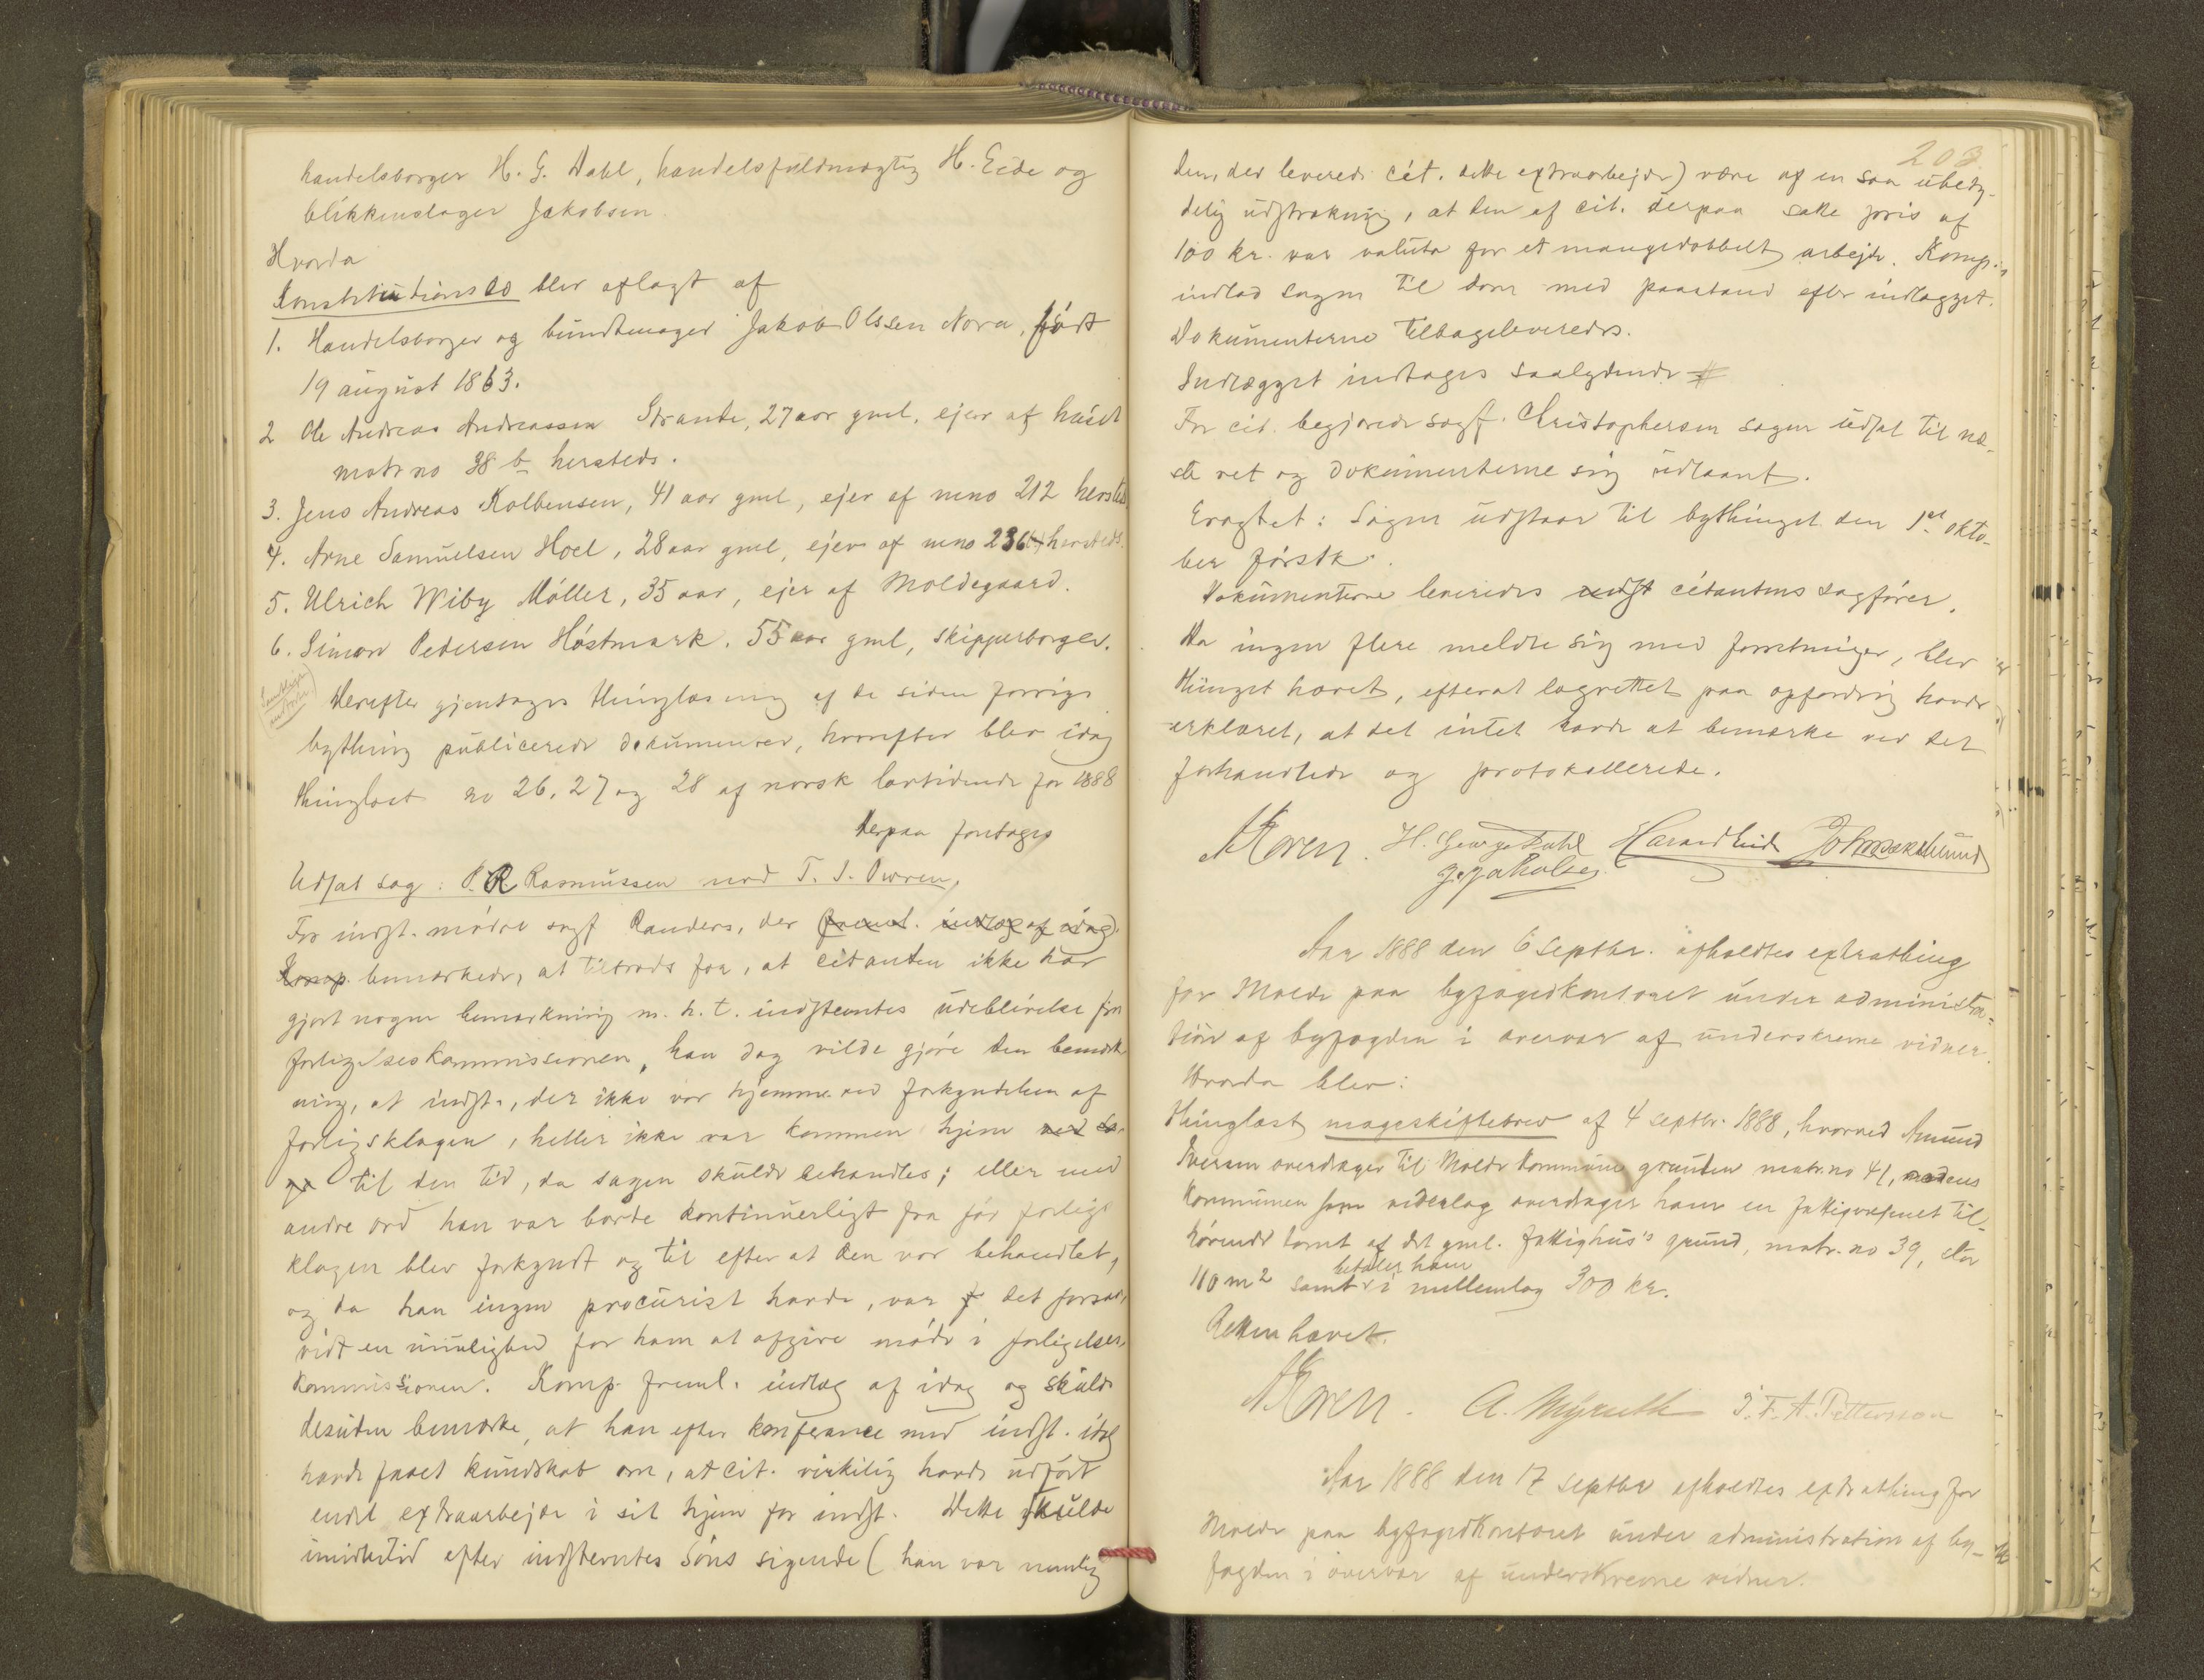 handelsborger H. G. Dahl, handelsfuldmægtig H. Eide og
blikkenslager Jakobsen.
Hvorda
Konstitutionsed blev aflagt af
1. Handelsborger og bundtmager Jakob Olssen Nora, født
19 august 1863.
2 Ole Andreas Andreassen Strande, 27 aar gml. ejer af huset
matr no 38 b hersteds.
3. Jens Andreas Kolbensen, 41 aar gml, ejer af mno 212 hersteds
4. Arne Samuelsen Hoel, 28 aar gml, ejer af mno 236 hersteds.
5. Ulrich Wiby Møller, 35 aar, ejer af Moldegaard.
6. Simon Pedersen Høstmark. 55 aar gml, skipperborger.
Derefter gjentages thinglæsning af de siden forrige
bything publicerede dokumenter, hvorefter blev idag
thinglæst no 26, 27 og 28 af norsk lovtidende for 1888
Derpaa foretages
Udsat sag: P. R. Rasmussen mod T. J. Owren.
For indst. mødte sagf Randers, der freml. indlæg af idag.
Komp. bemærkede, at tiltrods for, at citanten ikke har
gjort nogen bemærkning m. h. t. indstevntes udeblivelse fra
forligelseskommissionen, han dog vilde gjøre den bemærk-
ning, at indst., der ikke var hjemme ved forkyndelsen af
forligsklagen, heller ikke var kommen hjem ved sa-
ge til den tid, da sagen skulde behandles; eller med
andre ord han var borte kontinuerligt fra før forligs
klagen blev forkyndt og til efter at den var behandlet,
og da han ingen procurist havde, var det forsaa-
vidt en umulighed for ham at afgive møde i forligelses-
kommissionen. Komp. freml. indlæg af idag og skulde
desuden bemærke, at han efter konferance med indst. idag
havde faaet kundskab om, at cit. virkelig havde udført
endel extraarbejde i sit hjem for indst. Dette skulde
imidlertid efter indstevntes søns sigende (han var nemlig
203.
den, der leverede cit. dette extraarbejde) være af en saa ubety-
delig udstrækning, at den af cit. derpaa satte pris af
100 kr. var valuta for et mangedobbelt arbejde. Komp.
indlod sagen til dom med paastand efter indlægget.
Dokumenterne tilbageleveredes.
Indlægget indtages saalydende #
For cit. begjærede sagf. Christophersen sagen udsat til næ-
ste ret og dokumenterne sig udlaant.
Eragtet: Sagen udstaar til bythinget den 1ste okto-
ber førstk.
Dokumenterne leveredes indst citantens sagfører.
Da ingen flere meldte sig med forretninger, blev
thinget hævet, efterat lagrettet paa opfordring havde
erklæret, at det intet havde at bemærke ved det
forhandlede og protokollerede.
H. George Dahl Harald Eide
J. Jakobsen
Aar 1888 den 6 septbr. afholdtes extrathing
for Molde paa byfogedkontoret under administra-
tion af byfogden i overvær af underskrevne vidner.
Hvorda blev:
Thinglæst mageskiftebrev af 4 septbr. 1888, hvorved Amund
Iversen overdrager til Molde kommune grunden matr. no 41, medens
kommunen som vederlag overdrager ham en fattigvæsenet til-
hørende tomt af det gml. fattighus's grund, matr. no 39, stor
betaler ham
110 m2 samt i mellemlag 300 kr.
Retten hævet.
A. Myruth J. F. A. Pettersson
Aar 1888 den 17 septbr afholdtes extrathing for
Molde paa byfogedkontoret under administration af by-
fogden i overvær af underskrevne vidner.